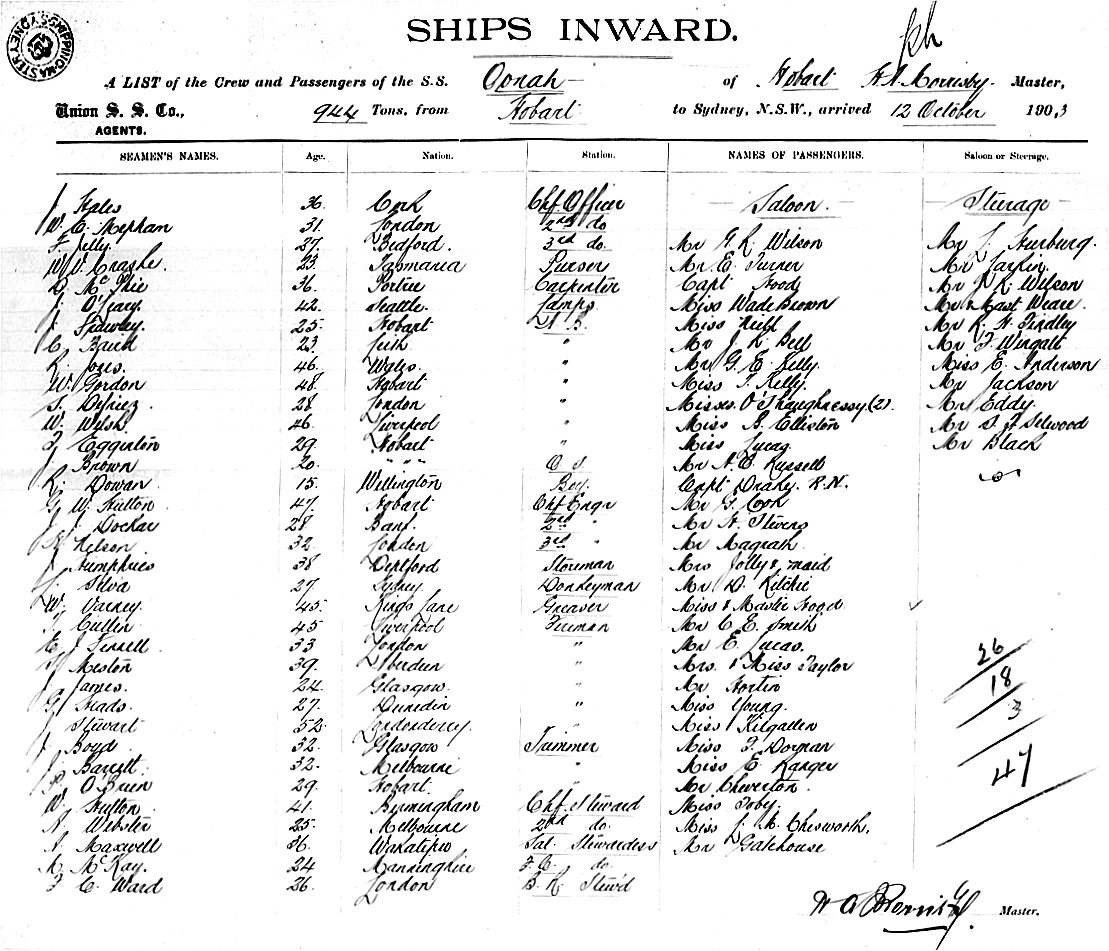 SHIPPING MASTER SYDNEY
SHIPS INWARD.
A LIST of the Crew and Passengers of the S.S. Oonah of Hobart H A Morrisby Master,
Union S. S. Co., 944 Tons, from Hobart to Sydney, N.S.W., arrived 12 October 1903
AGENTS.
SEAMEN'S NAMES. Age. Nation. Station. NAMES OF PASSENGERS. Saloon or Steerage.
J Hales 36 Cork Chf. Officer Saloon. Steerage
W. E. Mephan 31. London 2nd do
F. Jelly 27. Bedford. 3rd do. Mr G. R. Wilson Mr
W. V. 23 Tasmania Purser Mr E. Turner Mr Larkin
D. McPhie 36. Carpenter Capt Hood Mr R. Wilson
J. O'Leary 42. Seattle. Lamps Miss Wade Brown Mr & Mast Weare
J. 25. Hobart A B. Miss Mr R. H. Findley
C. Baird 23 Leith " Mr J. R. Bell Mr
R. Jones. 46. Wales. " Mr G. E. Kelly. Miss E. Anderson
W. Gordon 48. Hobart " Miss Kelly. Mr Jackson
28 London " Misses. O'Shaughnessy (2). Mr Eddy.
W. Welsh 46 Liverpool " Miss B. Elliston Mr Selwood
Eggerton 29. Hobart " Miss Lucas Mr Black
Brown 20. " " " O S Mr A. E. Russell
R. Dowan. 15. Wellington Boy. Capt Drake. R.N.
G. W. Hutton 47. Hobart Chf. Engr Mr G. Coon
J. Dockar 28 Banf. 2nd " Mr H. Stevens
Nelson 32. London 3rd " Mr Magrath
J Humphries 38 Deptford Storeman Mrs Jolly & maid
Silva 27 Sydney. Donkeyman Mr D. Ritchie
W. Varney. 45. Kings Lane Greaser Miss & Master Hood
Cullin 45 Liverpool Fireman Mr C E. Smith
E. J. Finnell 33 London " Mr E. Lucas. 26
Meston 39. Aberdeen " Mrs. & Miss Taylor
J James. 24. Glasgow. " Mr Hortin 18
G. Heads 27. Dunedin " Miss Young. 3
J Stewart 52. Londonderry. " Miss Kilgallen
J. Boyd 32. Glasgow Trimmer Miss Dornan
J. Barrett. 32. Melbourne " Miss E. Ranger 47
P. O'Brien 29. Hobart. " Mr Cheverton.
W. Hutton 41. Birmingham Chf. Steward Miss Toby.
A Webster 25. Melbourne 2nd do. Miss M. Chesworth,
A. Maxwell 36. Wakatipu Sal. Stewardess Mr Gatehouse
M. McKay. 24 F. C. do.
C. Ward 26. London B. R. Stew'd
H A Morrisby Master.